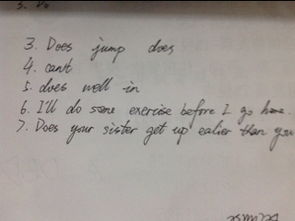 3. Does jump does
4. can't
5. does well in
6. I'll do some exercise before I go home.
7. Does your sister get up ealier than you